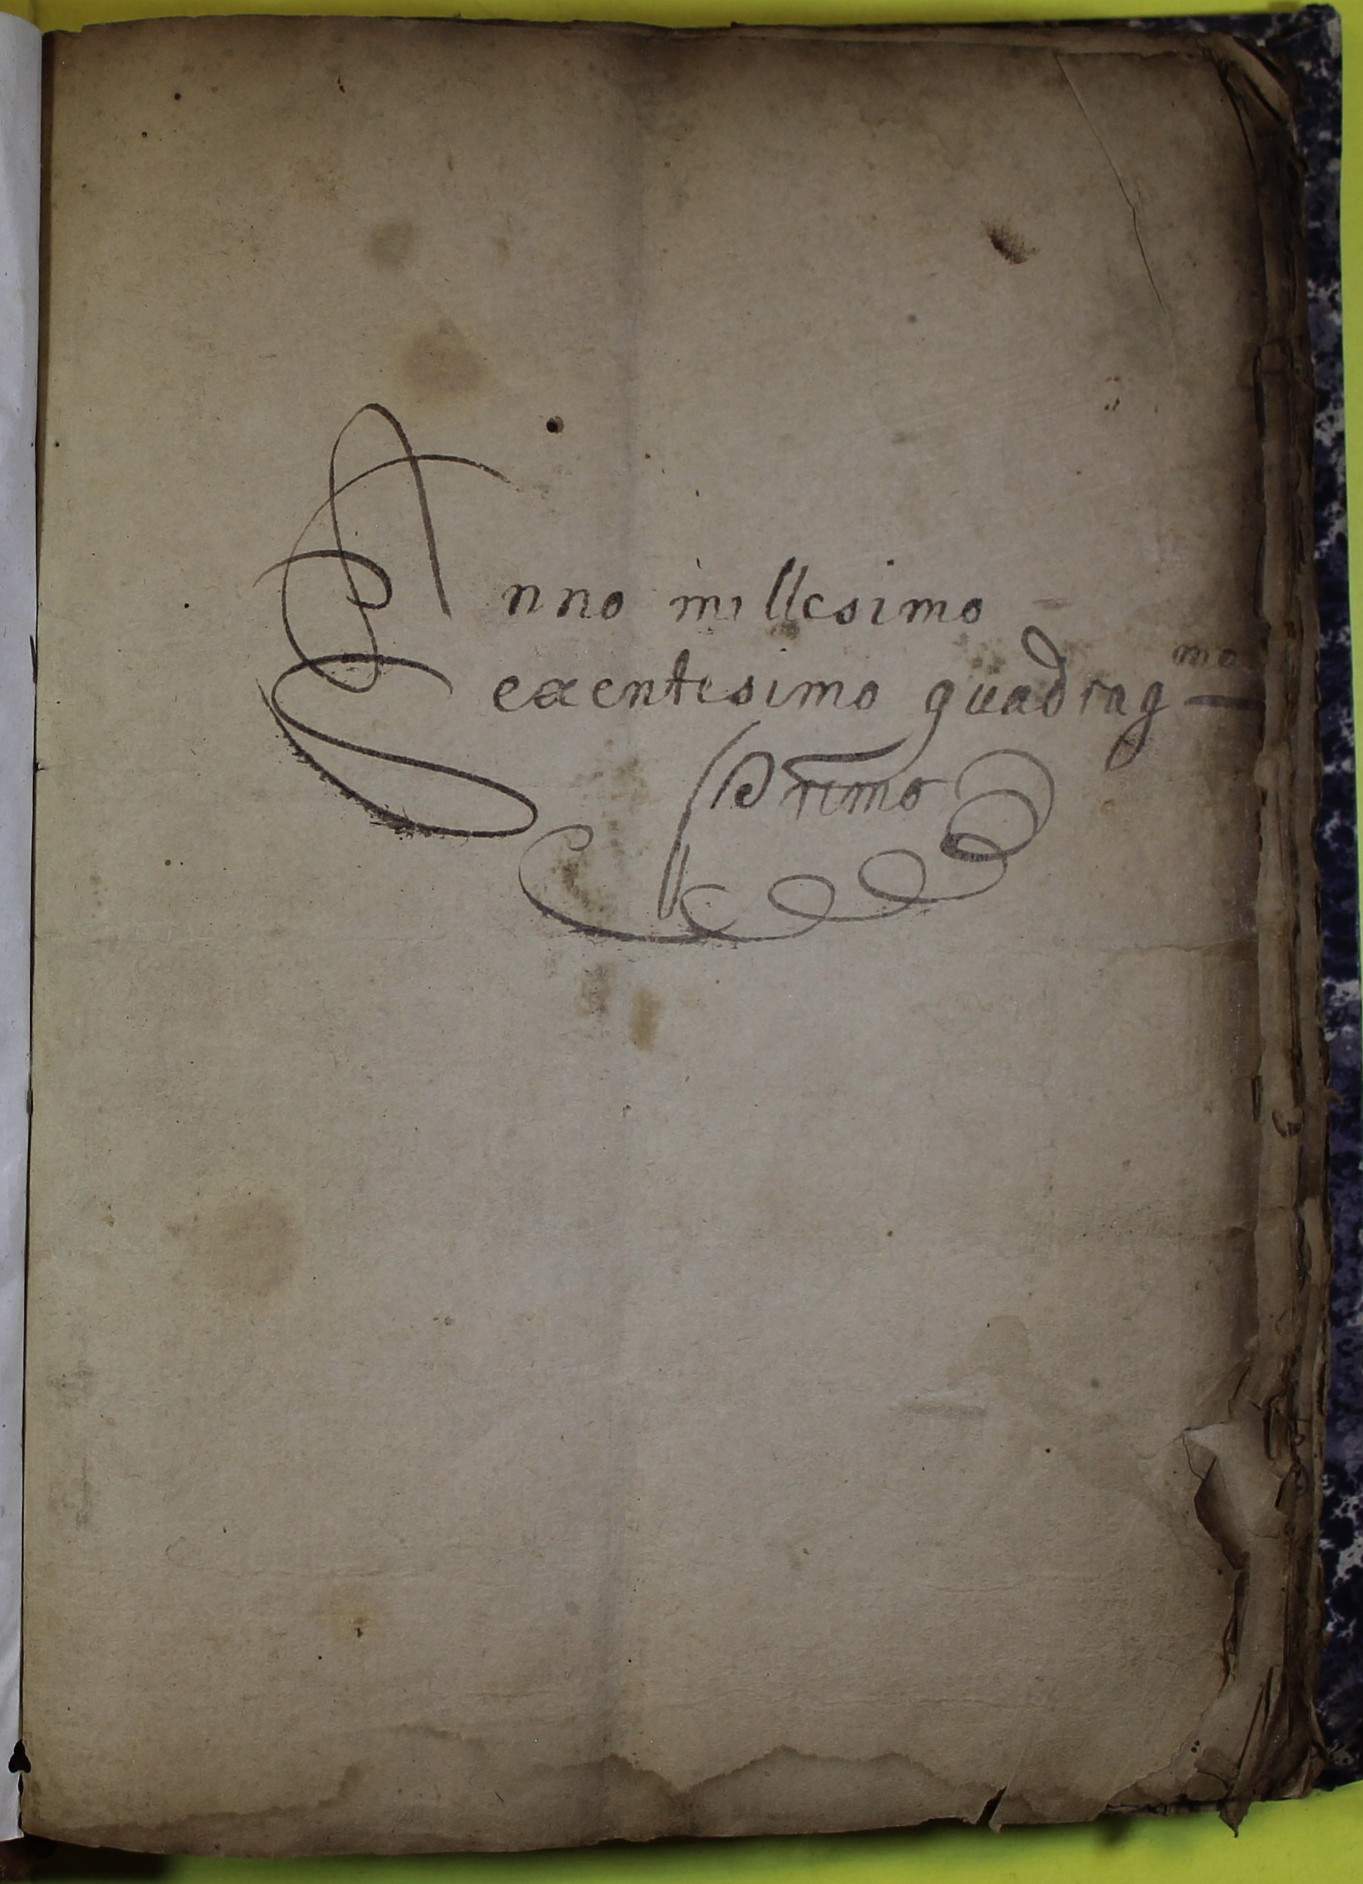 Anno millesimo
Sexentesimo quadrag mo
Primo